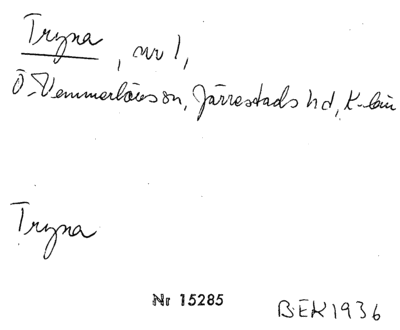 Tryna, nr 1,
Ö. Vemmerlövs sn, Järrestads hd, K-län
Tryna
Nr 15285
BEK 1936